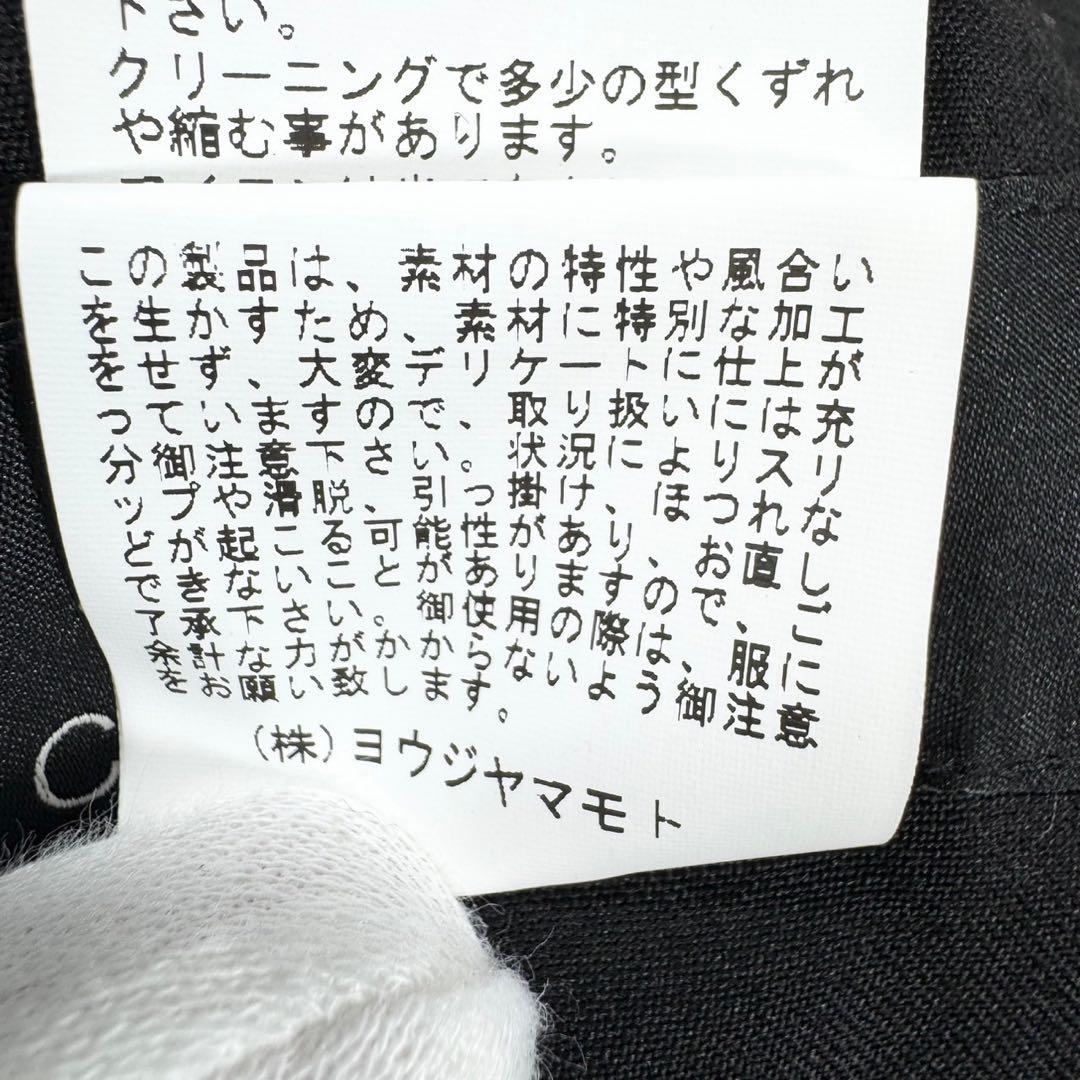 下さい。
クリーニングで多少の型くずれ
や縮む事があります。
この製品は、素材の特性や風合い
を生かすため、素材に特別な加工
をせず、大変デリケートに仕上が
っていますので、取り扱いには充
分御注意下さい。状況によりスリ
ップや滑脱、引っ掛け、ほつれな
どが起こる可能性があり、お直し
できないことがありますので、ご
了承下さい。御使用の際は、服に
余計な力がかからないよう御注意
をお願い致します。
(株)ヨウジヤマモト